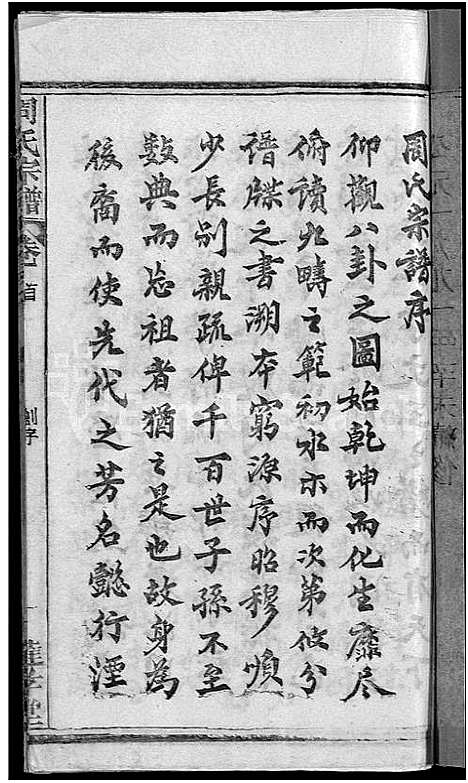 周氏宗譜序
仰觀八卦之圖始乾坤而化生靡尽
俯讀九疇之範初水木而次第攸分
譜牒之書溯本窮源序昭穆順
少長别親疏俾千百世子孫不至
数典而忘祖者猶之是也故身為
後裔而使先代之芳名懿行湮
周氏宗譜
卷首
創序